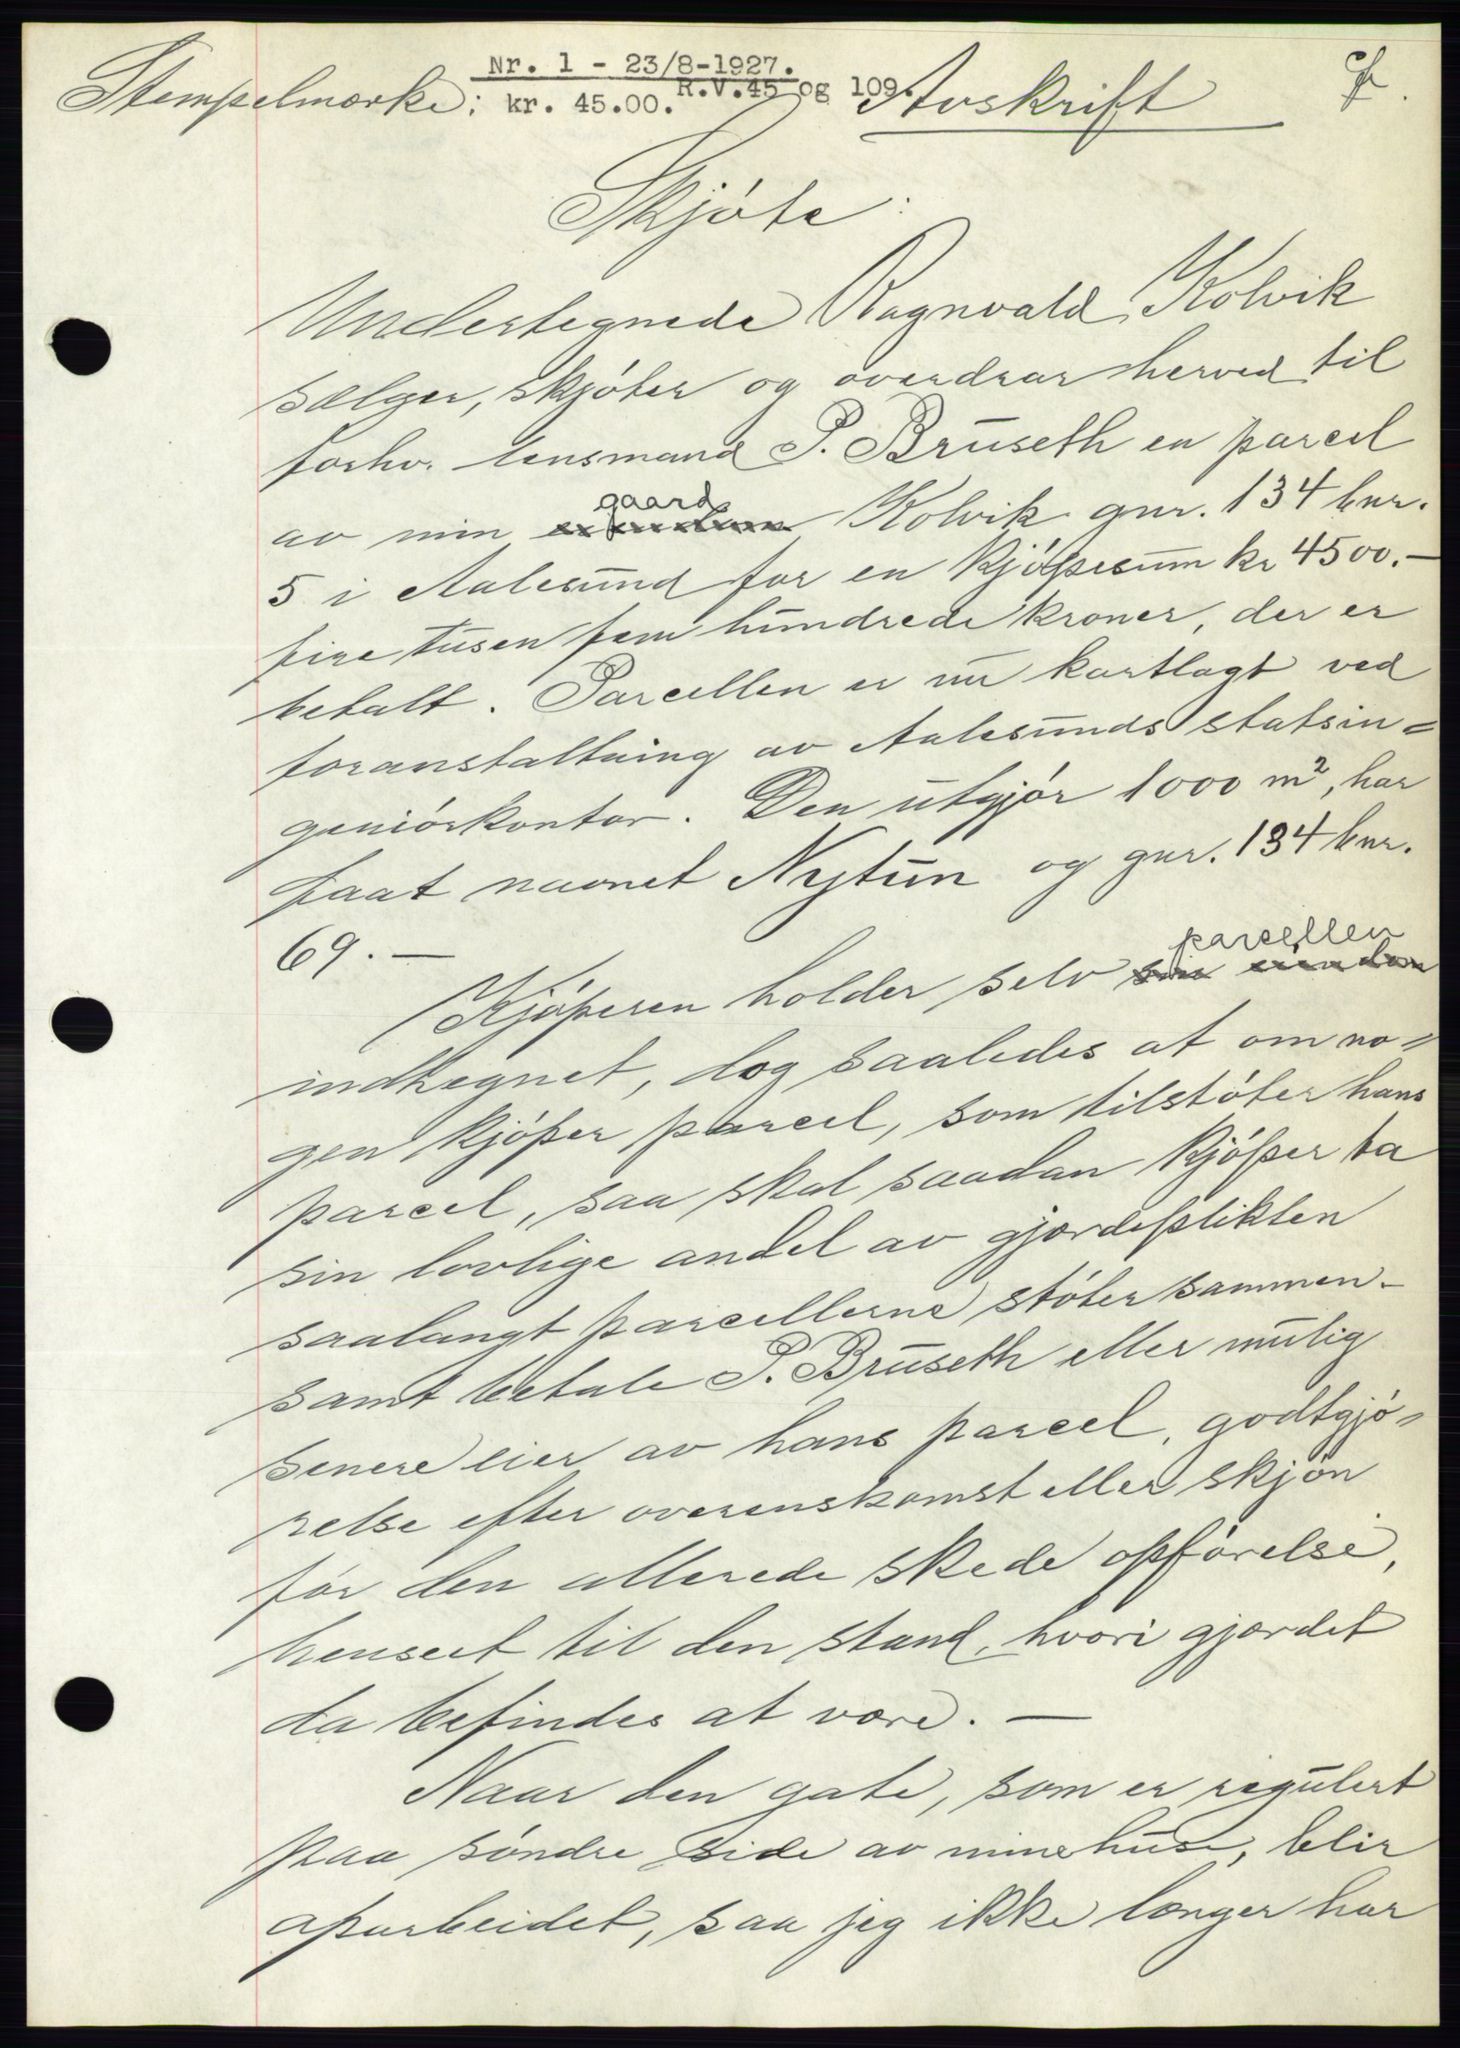 Nr. 1 - 23/8-1927.
Stempelmærke: kr. 45.00. R.V.45 og 109. Avskrift
Skjøte:
Undertegnede Ragnvald Kolvik
sælger, skjøter og overdrar herved til
forhv. lensmand P. Bruseth en parcel
gaard
av min eiendom Kolvik gnr. 134 bnr.
5 i Aalesund for en kjøpesum kr 4500.—
fire tusen fem hundrede kroner, der er
betalt. Parcellen er nu kartlagt ved
foranstaltning av Aalesunds statsin=
geniørkontor. Den utgjør 1000 m², har
faat navnet Nytun og gnr. 134 bnr.
69.—
parcellen
Kjøperen holder selv sin eiendom
indhegnet, dog saaledes at om no=
gen kjøper parcel, som tilstøter hans
parcel, saa skal saadan kjøper ta
sin lovlige andel av gjærdeplikten
saalangt parcellerne støter sammen -
samt betale P. Bruseth eller mulig
senere eier av hans parcel, godtgjø=
relse efter overenskomst eller skjøn
før den allerede skede opførelse,
henseet til den stand, hvori gjærdet
da befindes at være. —
Naar den gate, som er regulert
paa søndre side av mine huse, blir
oparbeidet, saa jeg ikke længer har